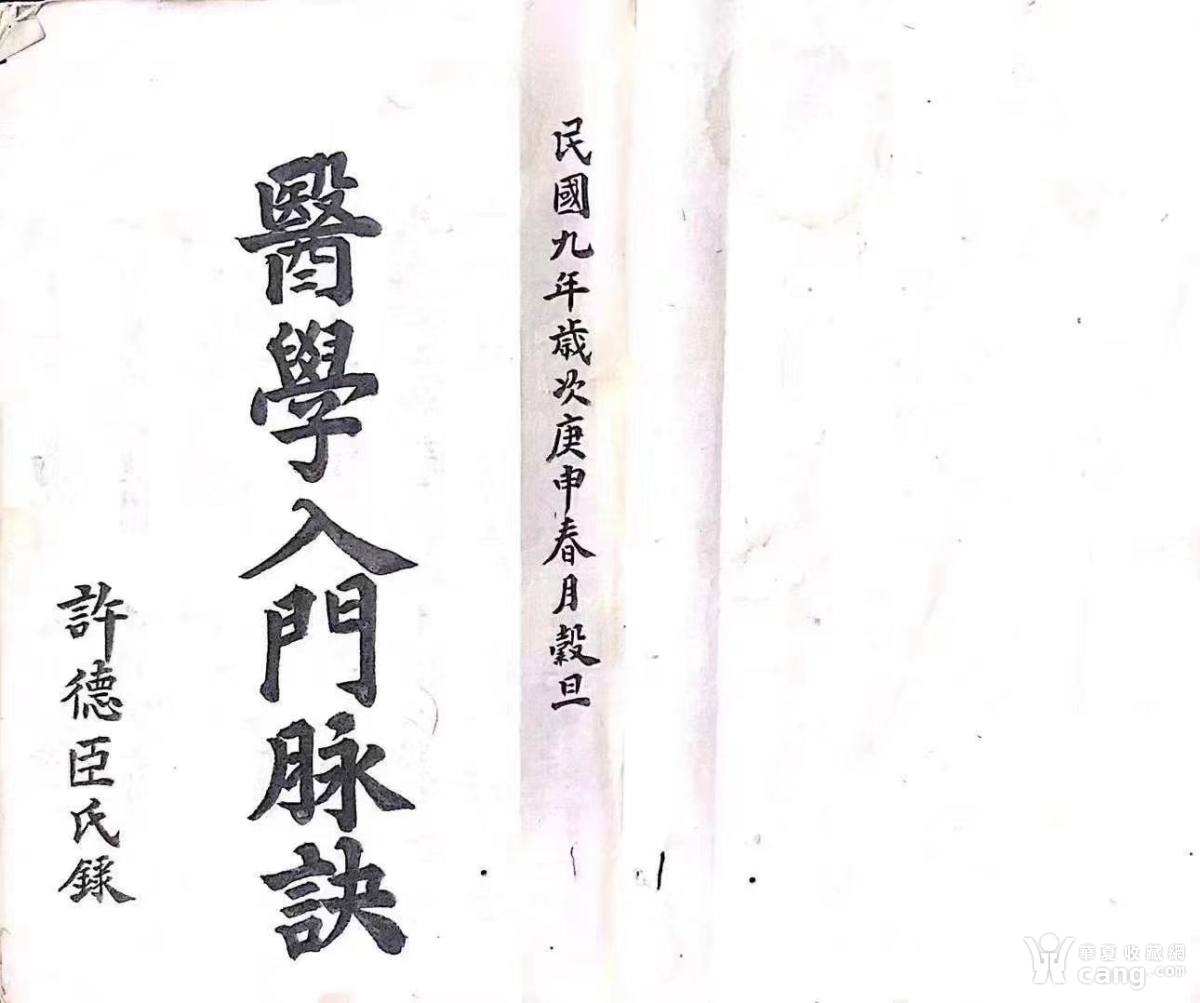 民國九年歲次庚申春月穀旦
醫學入門脉訣
許德臣氏録
華夏收藏網
cang.com